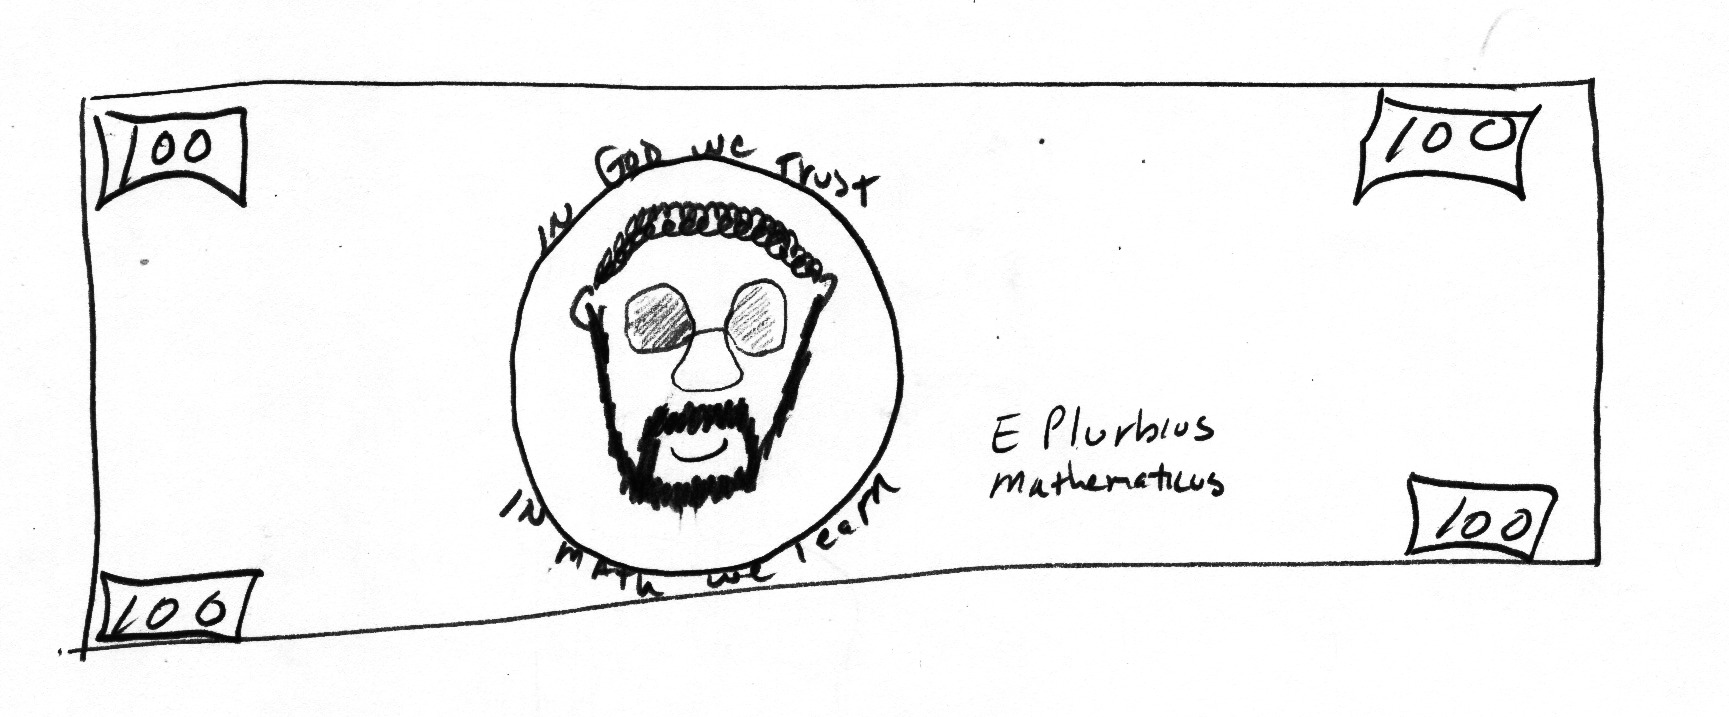 100
100
IN GOD we Trust
IN math we learn
E Plurbius
mathematicus
100
100